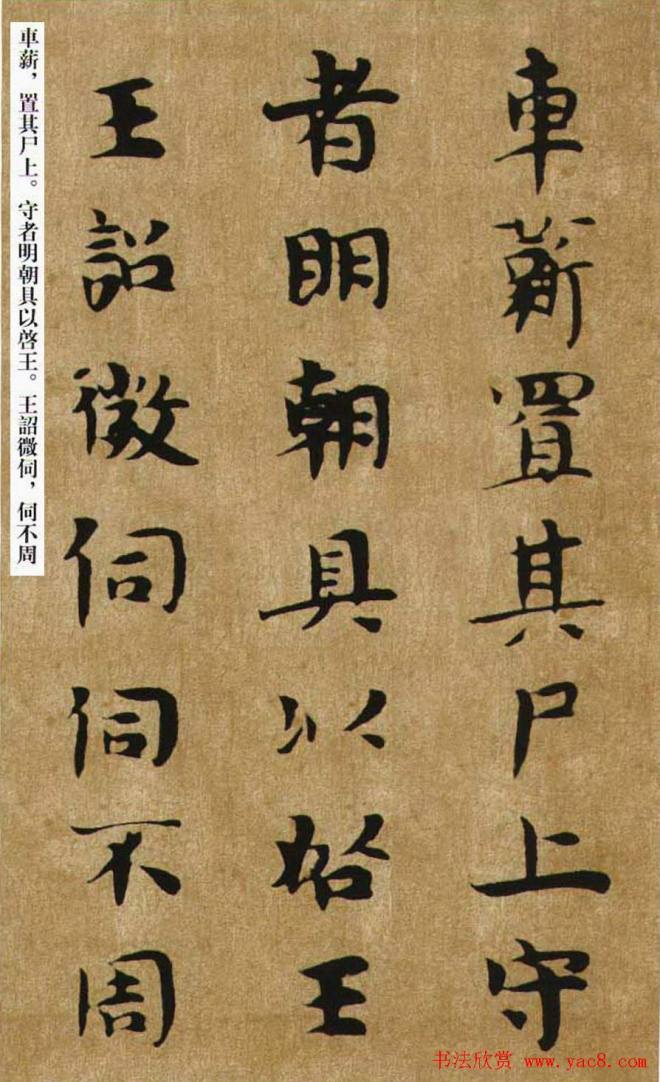 車薪置其尸上守
者明朝具以啓王
王詔微伺伺不周
車薪，置其尸上。守者明朝具以啓王。王詔微伺，伺不周
书法欣赏 www.yac8.com